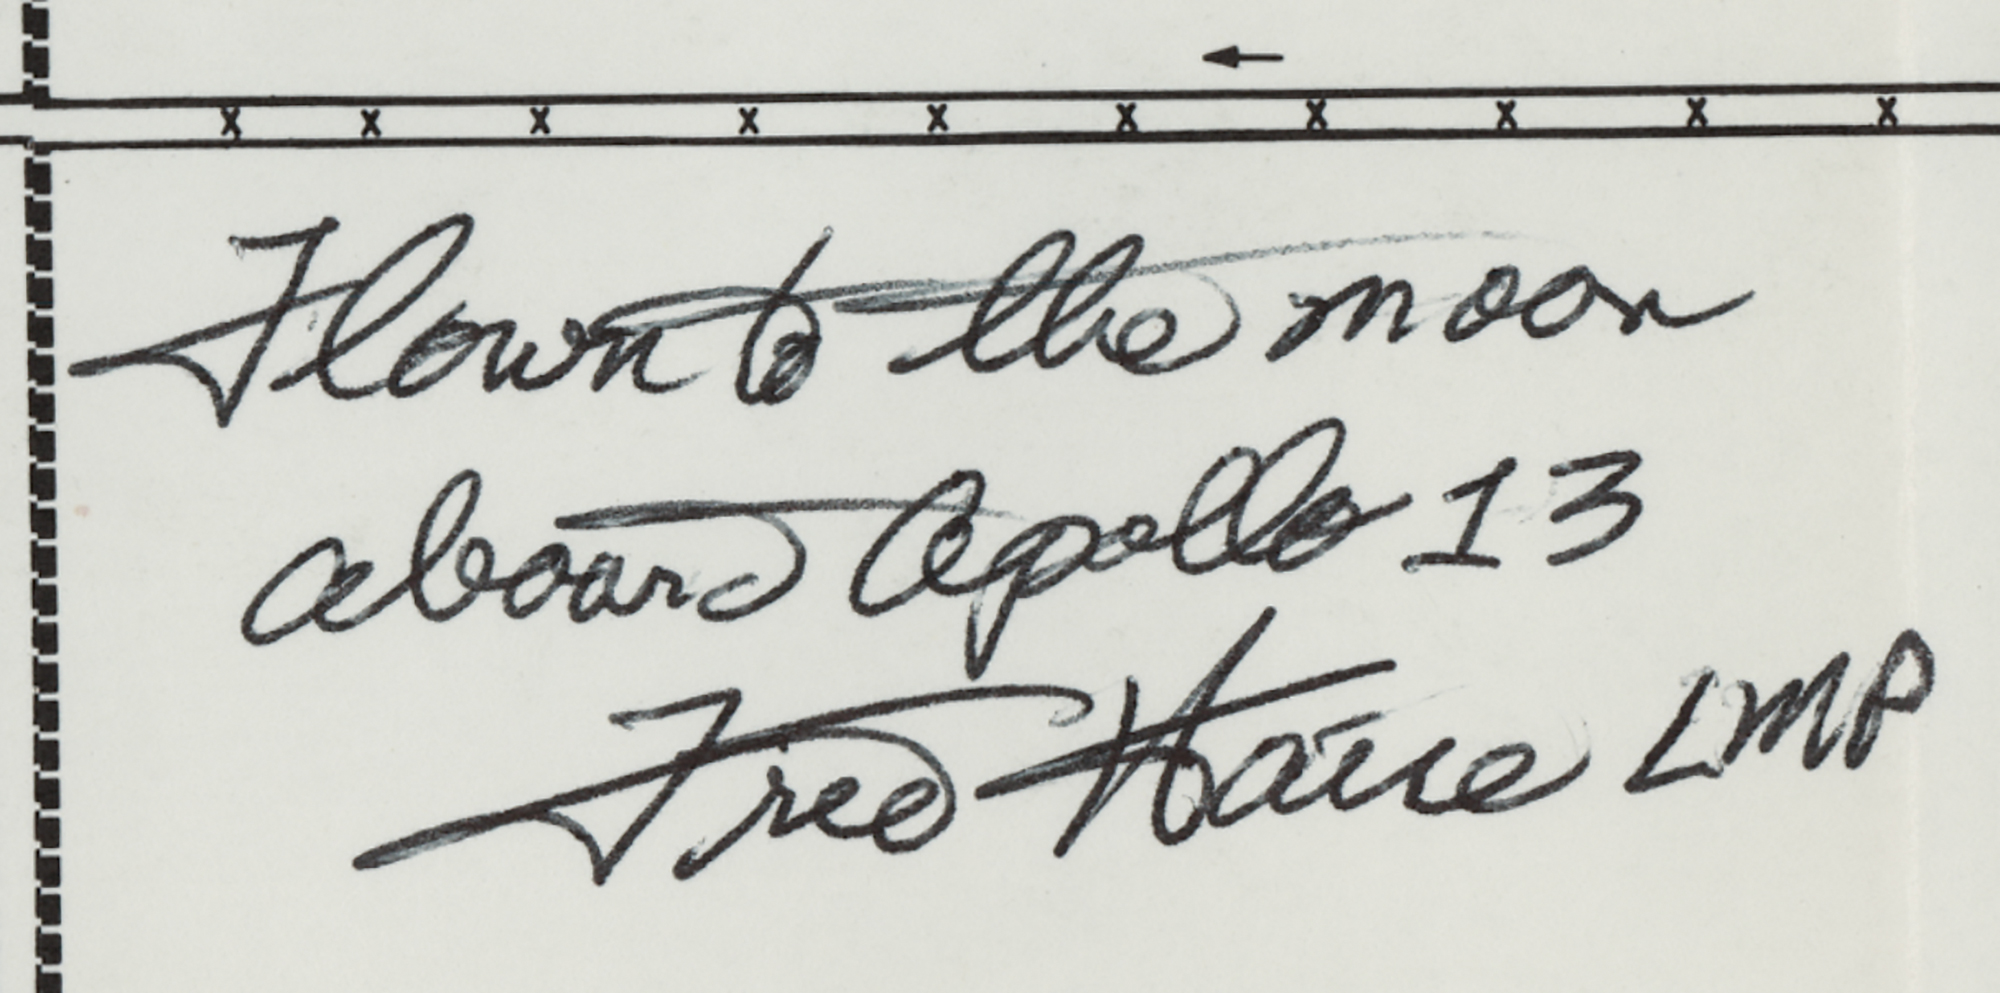 x x x x x x x x x x
Flown to the moon
aboard Apollo 13
Fred Haise LMP